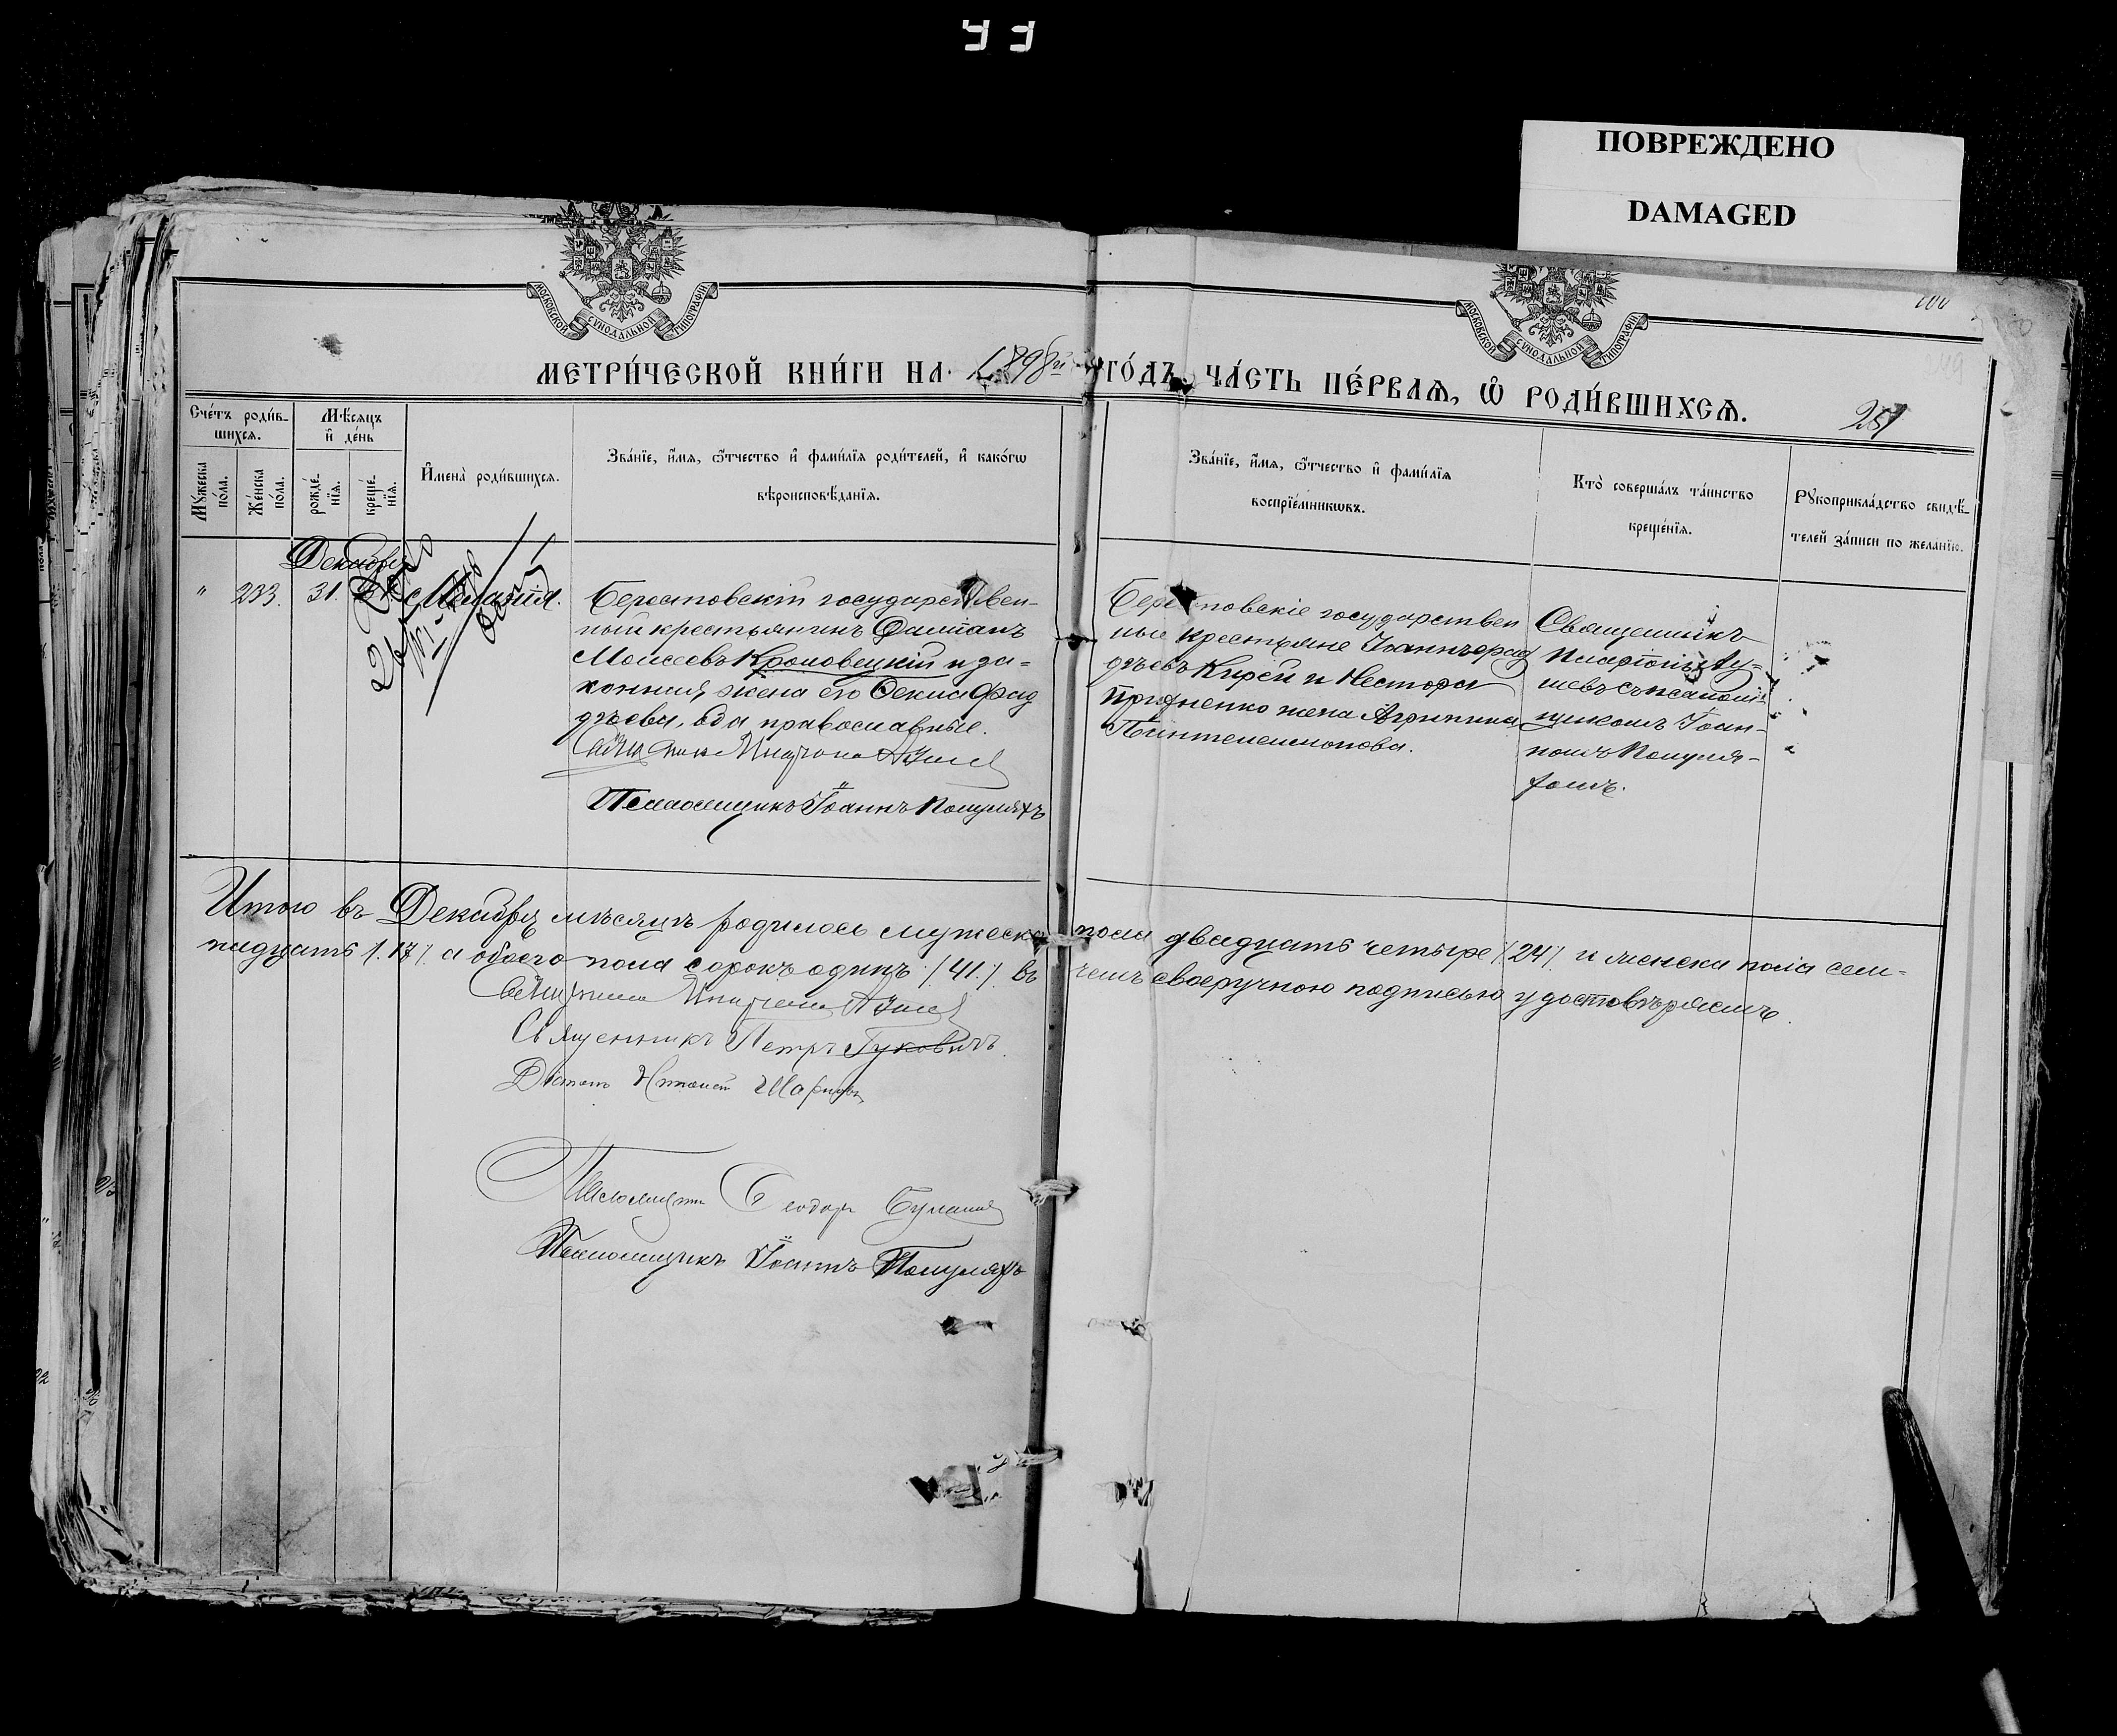 ПОВРЕЖДЕНО
DAMAGED
МОСКОВСКОЙ СУНОДАЛЬНОЙ ТИПОГРАФІИ
МОСКОВСКОЙ СУНОДАЛЬНОЙ ТИПОГРАФІИ
МЕТРИ́ЧЕСКОЙ КНИ́ГИ НА 1898й ГО́ДЪ, ЧА́СТЬ ПЕ́РВАѦ, Ѽ РОДИ́ВШИХСѦ.
251
Сче́тъ роди́в-
шихсѧ.
Мꙋ́жеска по́ла.
Же́нска по́ла.
Мѣ́сяцъ
и҆ де́нь
рожде́-
нїѧ.
креще́-
нїѧ.
И҆мена̀ роди́вшихсѧ.
Зва́нїе, и҆́мѧ, ѻ҆́тчество и҆ фами́лїѧ роди́телей, и҆ како́гѡ
вѣроисповѣ́данїѧ.
Зва́нїе, и҆́мѧ, ѻ҆́тчество и҆ фами́лїѧ
воспрїе́мникѡвъ.
Кто̀ соверша́лъ та́инство
креще́нїѧ.
Рꙋкоприкла́дство свидѣ́-
телей за́писи по жела́нїю.
Декабрь
" 233. 31. 31. Меланія.
Берестовскій государствен-
ный крестьянинъ Даміанъ
Моисеевъ Кроповецкій и за-
конная жена его Фекла Фад
дѣева, оба православные.
Псаломщикъ Іоаннъ Полуляхъ
Берестовскіе государствен
ные крестьяне Іоаннъ Фад
дѣевъ Кирей и Нестора
жена Агрипина
Пантелеимонова.
Священникъ
Иларіонъ Ау-
шевъ съ псалом-
щикомъ Іоан-
номъ Полуля-
хомъ.
Итого въ Декабрѣ мѣсяцѣ родилось мужеска пола двадцать четыре /24/. и женска пола сем-
надцать /. 17/. а обоего пола сорокъ одинъ /. 41./. въ чемъ своеручною подписью удостовѣряемъ.
Священникъ Петръ Гуковичъ.
Псаломщикъ Ѳеодоръ
Псаломщикъ Іоаннъ Полуляхъ